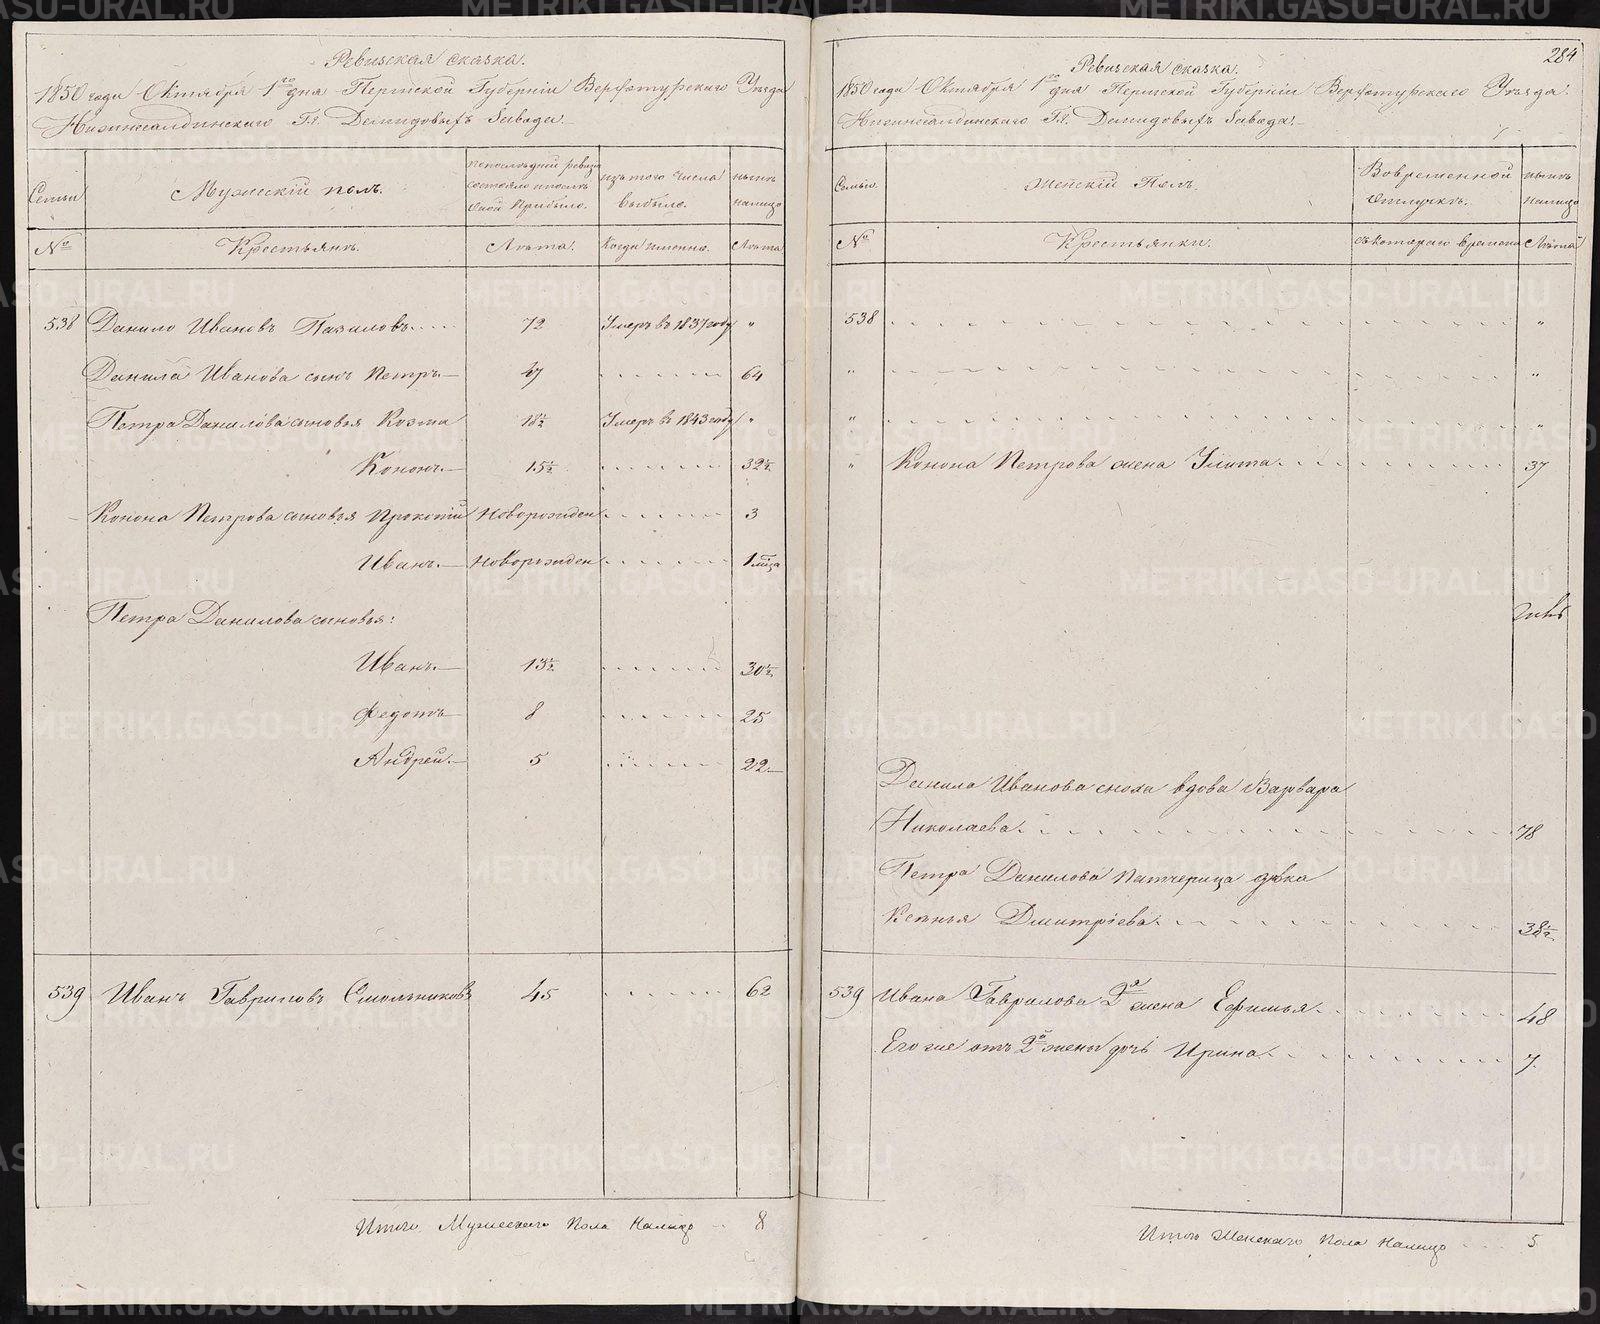 Ревизская сказка.
1850 года Октября 1го дня Пермской Губерніи Верхотурскаго Уезда
Нижнесалдинскаго Гг. Демидовыхъ Завода.
Семьи
Мужескій полъ.
По последней ревизіи
состояло и после
оной Прибыло.
изъ того числа
выбыло.
ныне
налицо
№
Крестьянъ.
Лета.
Когда именно.
Лета
538 Данило Ивановъ 72 Умеръ въ 1837 году "
Данила Иванова сынъ Петръ 47 64
Петра Данилова сыновья Козма 18½ Умеръ въ 1843 году "
Кононъ. 15½ 32½
Конона Петрова сыновья Прокопій Новорожден 3
Иванъ. Новорожден 1 м͠ца
Петра Данилова сыновья:
Иванъ. 13½ 30½
Федотъ 8 25
Андрей. 5 22
539 Иванъ Гавриловъ Смольниковъ 45 62
Итого Мужескаго Пола Налицо 8
284
Ревизская сказка.
1850 года Октября 1го дня Пермской Губерніи Верхотурскаго Уезда.
Нижнесалдинскаго Гг. Демидовыхъ Завода.
Семьи.
Женскій Полъ.
Во временной
отлучке.
ныне
налицо
№
Крестьянки.
съ котораго времени
Лета
538 "
" "
" "
" Конона Петрова жена Улита 37
Данила Иванова сноха вдова Варвара
Николаева. 78
Петра Данилова Патчерица девка
Ксенья Дмитріева. 38½
539 Ивана Гаврилова 2я жена Ефимья 48
Его же отъ 2й жены дочь Ирина 7.
Итого Женскаго Пола Налицо 5
METRIKI.GASO-URAL.RU